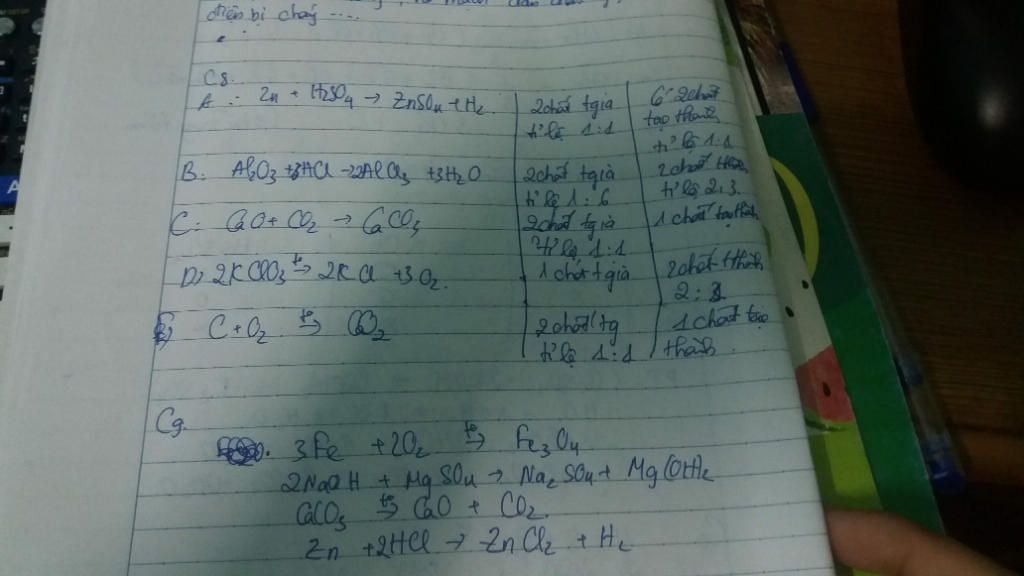 điện bị cháy ....
C8.
A: Zn + H2SO4 → ZnSO4 + H2 | 2chất tgia | 2chất
tỉ lệ 1:1 | tạo thành
tỉ lệ 1:1
B: Al2O3 + HCl → 2AlCl3 + 3H2O | 2chất tgia | 2chất thành
tỉ lệ 1:6 | tỉ lệ 2:3
C: CaO + CO2 → CaCO3 | 2chất tgia | 1 chất tạo thành
tỉ lệ 1:1
D) 2KClO3 t°→ 2KCl + 3O2. | 1 chất tgia | 2chất t thành
2:3
E) C + O2 t°→ CO2 | 2chất tg | 1 chất tạo
tỉ lệ 1:1 | thành.
C9.
3Fe + 2O2 t°→ Fe3O4
2NaOH + MgSO4 → Na2SO4 + Mg(OH)2
CaCO3 t°→ CaO + CO2.
Zn + 2HCl → ZnCl2 + H2